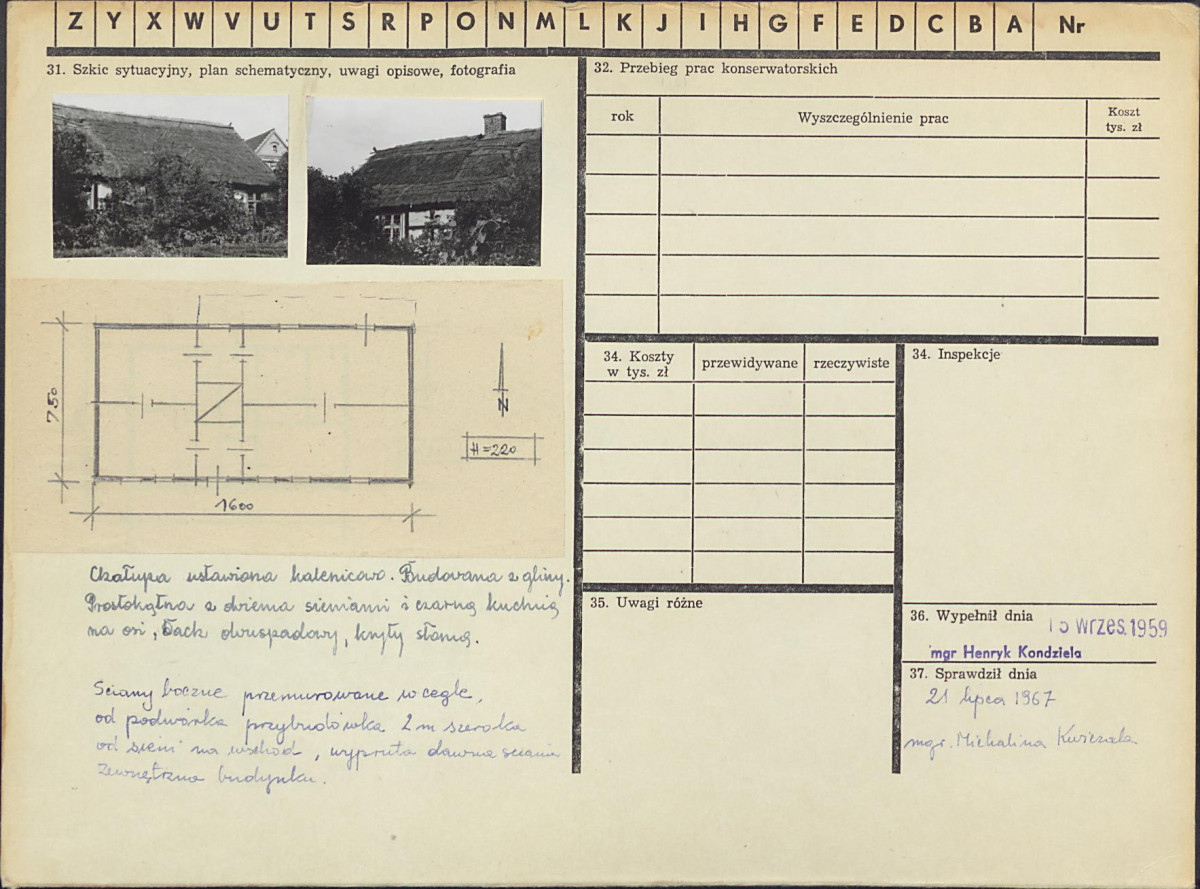 Z Y X W V U T S R P O N M L K J I H G F E D C B A Nr
31. Szkic sytuacyjny, plan schematyczny, uwagi opisowe, fotografia
7.50
N
H=220
1600
Chałupa ustawiona kalenicowo. Budowana z gliny.
Prostokątna z dwiema sieniami i czarną kuchnią
na osi, Dach dwuspadowy, kryty słomą.
Sciany boczne przemurowane w cegle,
od podwórka przybudówka 2 m szeroka
od sieni na wschód, wypruta dawna sciana
Zewnętrzna budynku.
32. Przebieg prac konserwatorskich
rok
Wyszczególnienie prac
Koszt
tys. zł
34. Koszty
w tys. zł
przewidywane
rzeczywiste
34. Inspekcje
35. Uwagi różne
36. Wypełnił dnia
15 wrzes. 1959
mgr Henryk Kondziela
37. Sprawdził dnia
21 lipca 1967
mgr. Michalina